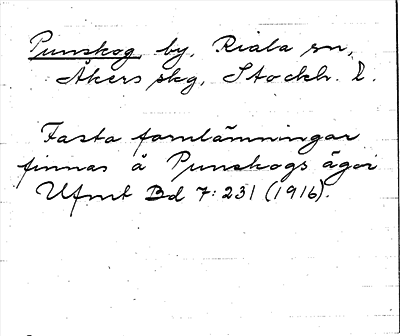 Punskog by, Riala sn,
Åkers skg, Stockh. l.
Fasta fornlämningar
finnas å Punskogs ägor
Ufmt Bd 7:231 (1916).